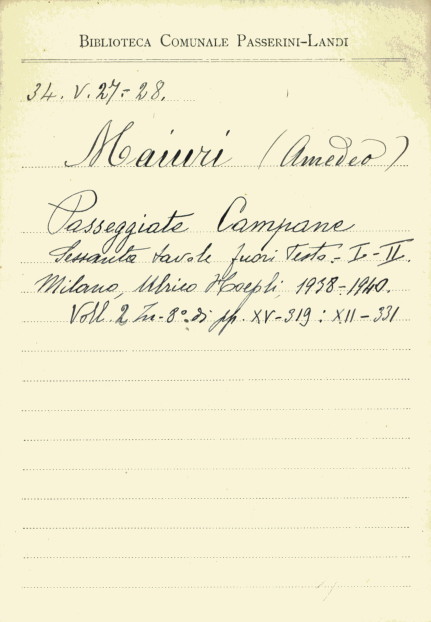 BIBLIOTECA COMUNALE PASSERINI-LANDI
34. V. 27-28.
Maiuri (Amedeo)
Passeggiate Campane
Sessanta tavole fuori Testo. - I - II.
Milano, Ulrico Hoepli, 1938-1940.
Voll. 2 In-8° di pp. XV-319 : XII-331